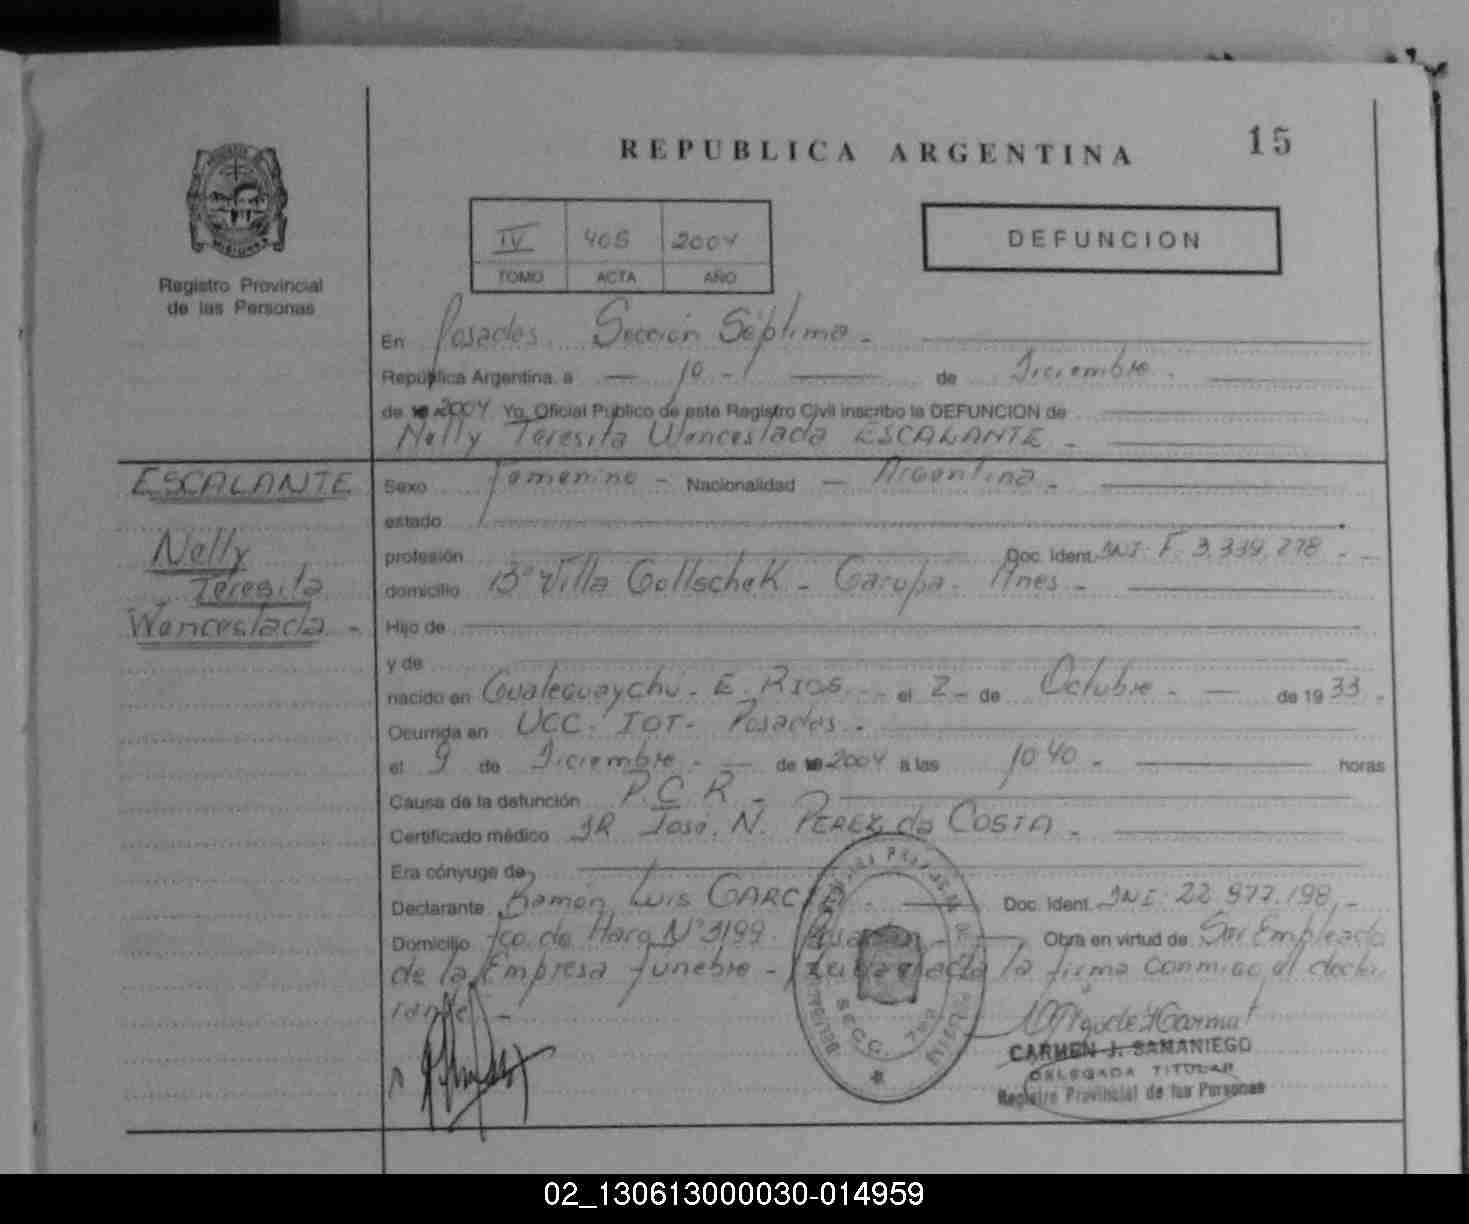 REPUBLICA ARGENTINA
15
Registro Provincial
de las Personas
IV 405 2004
TOMO ACTA AÑO
DEFUNCION
En Posadas. Sección Séptima -
República Argentina, a - 10 - de Diciembre -
de 2004 Yo, Oficial Público de este Registro Civil inscribo la DEFUNCION de
Nelly Teresita Wenceslada ESCALANTE -
ESCALANTE
Nelly
Teresita
Wenceslada -
Sexo Femenino - Nacionalidad - Argentina -
estado
profesión Doc. Ident. DNI. F. 3.339.278 -
domicilio B° Villa Gottschek - Garupa - Mnes -
Hijo de
y de
nacido en Gualeguaychú - E. RIOS - el 2 - de Octubre - de 1933 -
Ocurrida en UCC. IOT - Posadas -
el 9 de Diciembre - de 2004 a las 10 40 - horas
Causa de la defunción P.C.R -
Certificado médico DR José. N. PEREZ da COSTA -
Era cónyuge de
Declarante Ramón Luis GARCIA - Doc. Ident. DNI: 22.977.198 -
Domicilio Fco. de Haro N° 3199. Posadas - Obra en virtud de Ser Empleado
de la Empresa funebre - acta la firma conmigo el decla
rante -
SECC. 7ma
CARMEN J. SAMANIEGO
DELEGADA TITULAR
Registro Provincial de las Personas
02_130613000030-014959